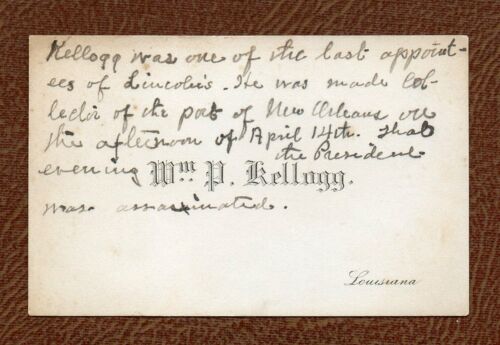 Kellogg was one of the last appoint-
ees of Lincoln's. He was made Col-
lector of the port of New Orleans on
the afternoon of April 14th. That
evening the President
Wm. P. Kellogg.
was assassinated.
Louisiana